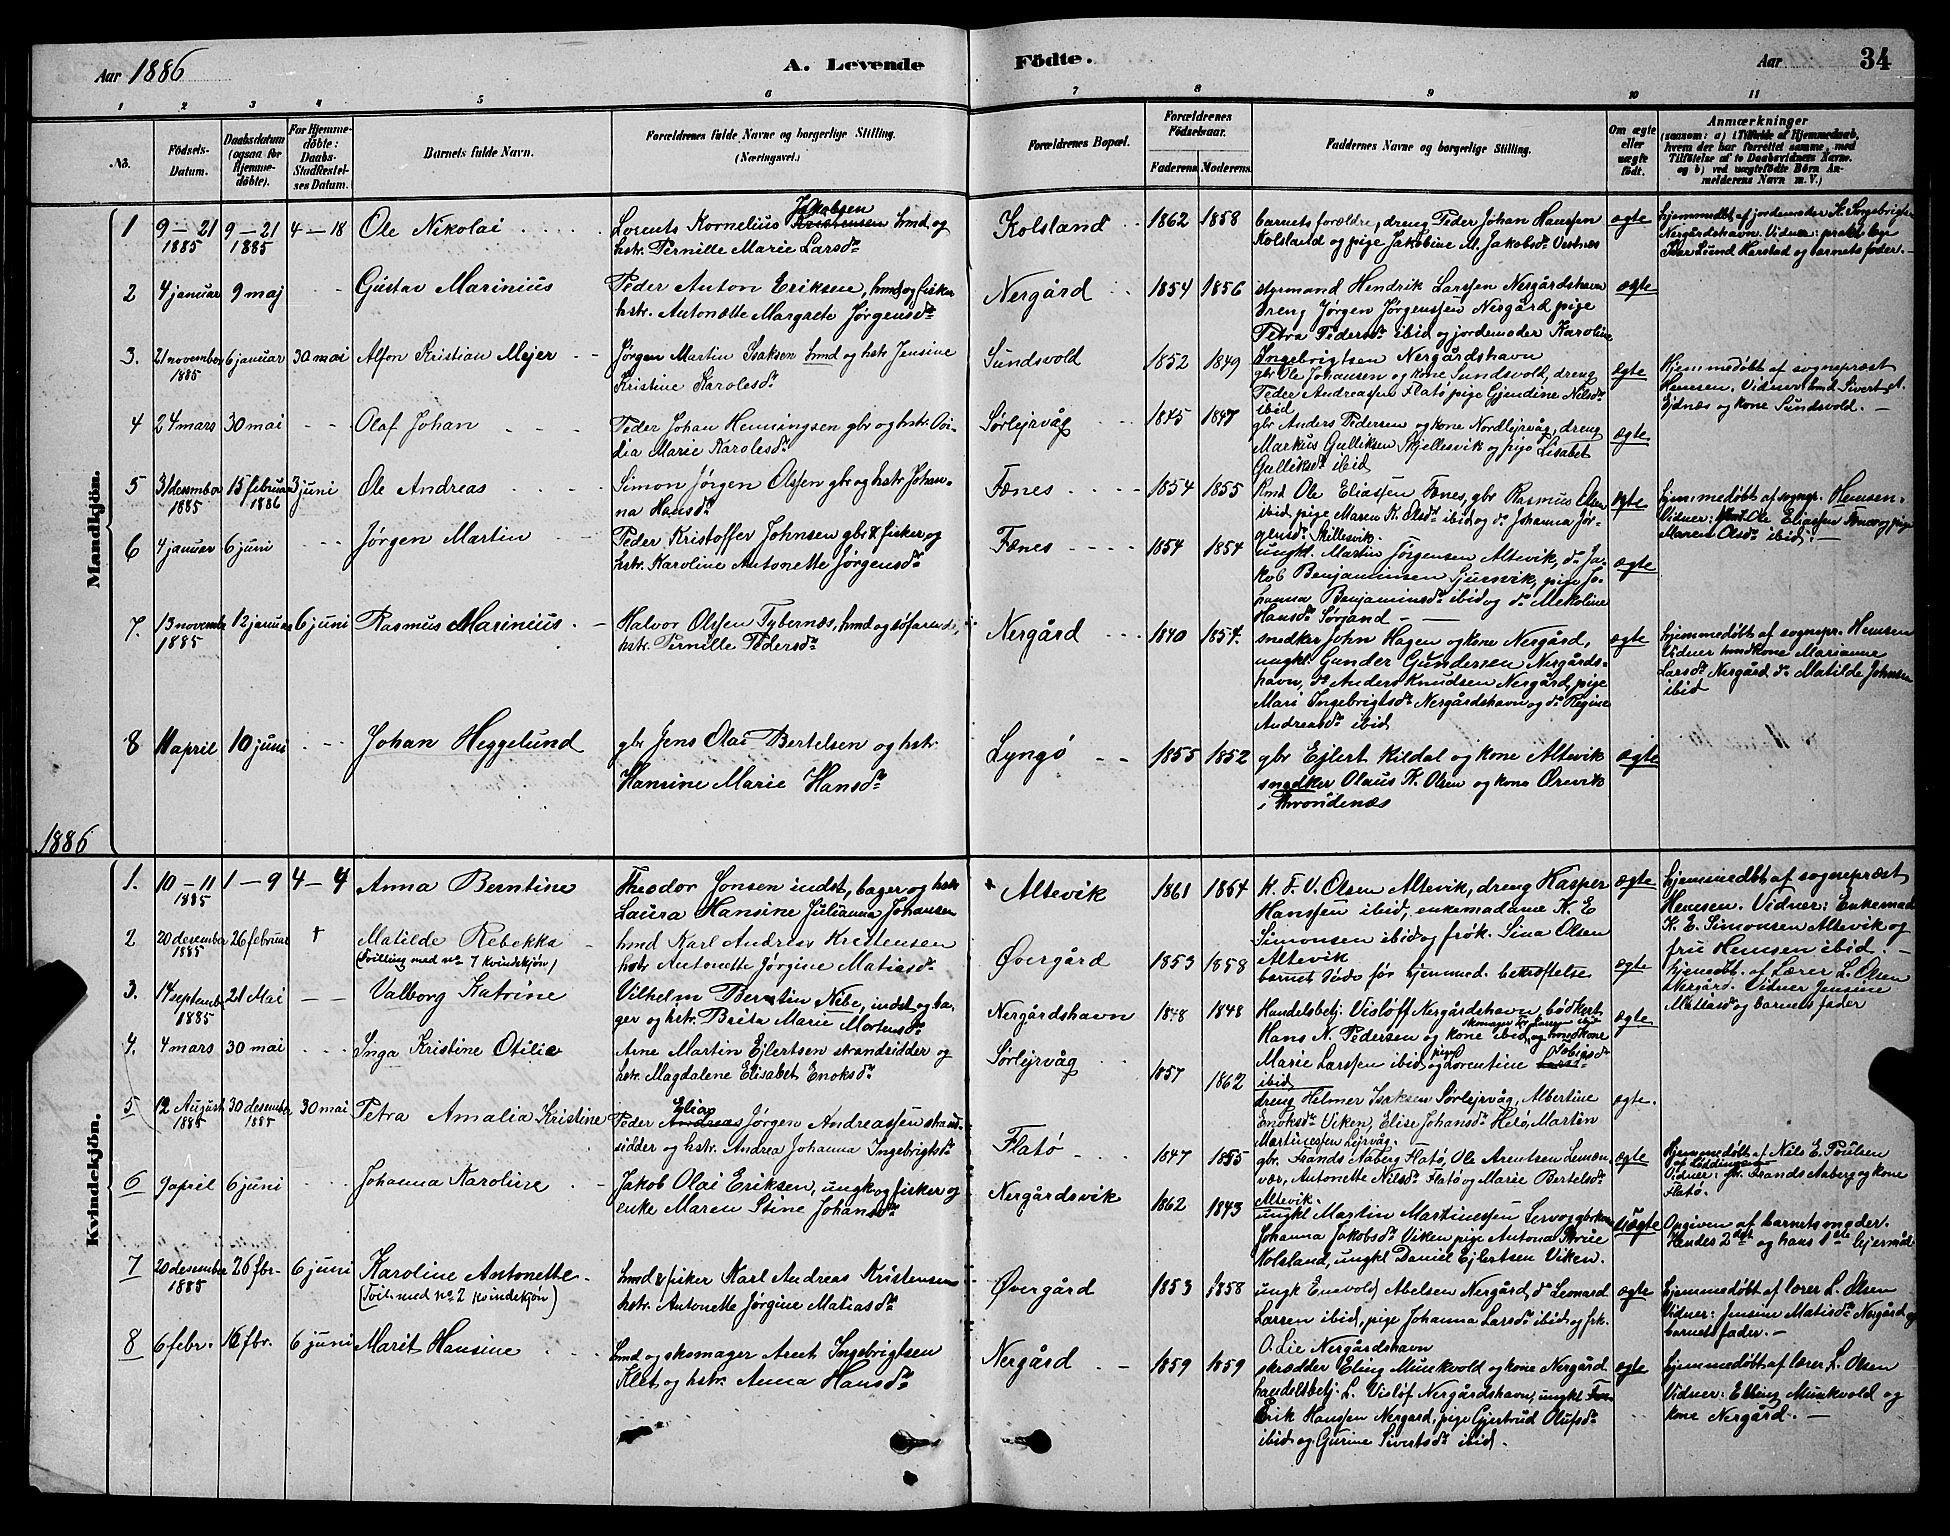 Aar 1886
A. Levende Födte.
Aar
34
1 2 3 4 5 6 7 8 9 10 11
No.
Födsels-Datum.
Daabsdatum (ogsaa for Hjemmedöbte).
For Hjemmedöbte: Daabs-Stadfæstelses Datum.
Barnets fulde Navn.
Forældrenes fulde Navne og borgerlige Stilling. (Næringsvei.)
Forældrenes Bopæl.
Forældrenes Födselsaar.
Faderens. Moderens.
Faddernes Navne og borgerlige Stilling.
Om ægte eller uægte födt.
Anmærkninger
(saasom: a) i Tilfælde af Hjemmedaab, hvem der har forrettet samme, med Tilföielse af to Daabsvidners Navne, og b) ved uægtefödte Börn Anmelderens Navn m. V.)
Mandkjön.
1 9–21 1885 9–21 1885 4–18 Ole Nikolai
Lorents Kornelius Jakobsen hmd og
hstr. Pernille Marie Larsdr
Kolsland 1862 1858
barnets forældre, dreng Peder Johan Hanssen
Kolsland og pige Jakobine M. Jakobsdr Vestnes
ægte
hjemmedbt af jordemoder K. Ingebrigtsen
Nergårdshavn. Vidner: prakt. læge
Lund Harstad og barnets fader.
2 4 januar 9 maj Gustav Marinius
Peder Anton Eriksen, hmd og fisker
hstr. Antonætte Margrete Jørgensdr
Nergård 1854 1856
styrmand Hendrik Larssen Nergårdshavn
dreng Jørgen Jørgenssen Nesgård pige
Petra Pedersdr ibid og jordemoder Karoline
Ingebrigtsen Nergårdshavn
ægte
3. 21 november 1885 6 januar 30 mai Alfon Kristian Mejer
Jørgen Martin Isaksen hmd og hstr Jensine
Kristine Karolesdr
Sundsvold 1852 1849
gbr Ole Johansen og kone Sundsvold, dreng
Peder Andreassen Flatø pige Gjendine Nilsdr
ibid
ægte
Hjemmedøbt af sognepræst
Hemsen. Vidner hmd Sivert
Ejdnæs og kone Sundsvold.
4 24 mars 30 mai Olaf Johan
Peder Johan Henningsen gbr og hstr. Ovi-
dia Marie Karolesdr
Sørlejrvåg 1845 1847
gbr Anders Pedersen og kone Nordlejrvåg, dreng
Markus Gulliksen Skjellesvik og pige Lisabet
Gulliksdr ibid
ægte
5 31 desember 1885 15 februar 1886 3 juni Ole Andreas
Simon Jørgen Olssen gbr og hstr Johan-
na Hansdr
Fænes 1854 1855
Kmd Ole Eliassen Fænes, gbr Rasmus Olsen
ibid pige Maren K. Olsdr ibid og do Johanna Jør-
gensdr Skillesvik.
ægte
hjemmedøbt af sogner. Hemsen
Vidner: Ole Eliassen Fænes og pige
Maren Olsdr ibid.
6 4 januar 6 juni Jørgen Martin
Peder Kristoffer Johnsen gbr & fisker og
hstr. Karoline Antonette Jørgensdr
Fænes 1854 1854
ungkl. Martin Jörgensen Altevik, do Ja-
kob Benjaminsen Gjusvik, pige Jo-
hanna Benjaminsdr ibid og do Mekoline
Hansdr Sørsand
ægte
7. 13 november 1885 12 januar 6 juni Rasmus Marinius
Halvor Olssen Tybernæs, hmd og söfarende,
hstr. Pernille Pedersdr
Nergård 1840 1854.
snedker John Hagen og kone Nergård,
ungkl. Gunder Gundersen Nergårds-
havn, do Anders Knudsen Nergård, pige
Mari Ingebrigtsdr Nergårdshavn og do Regine
Andreasdr ibid
ægte
hjemmedøbt af sognepr. Hemsen
Vidner hmdkone Marianne
Larsdr Nergård do Matilde Johnsen
ibid
8 11 april 10 juni Johan Heggelund
gbr Jens Olai Bertelsen og hstr.
Hansine Marie Hansdr
Lyngø 1855 1852
gbr Ejlert Kildal og kone Altevik
snedker Olaus K. Olsen og kone Ørevik
i Throndenæs
ægte
1886
Kvindekjön.
1. 10–11 1885 1–9 4–4 Anna Berntine
Theodor Jonsen indst, bager og hstr
Laura Hansine Julianna Johansen
Altevik 1861 1854
K. F. V. Olsen Altevik, dreng Hasper
Hanssen ibid, enkemadame K. E
Simonsen ibid og frök. Sina Olsen
Altevik
ægte
hjemmedbt af sognepræst
Hemsen. Vidner: Enkemad
K. E. Simonsen Altevik og
fru Hemsen ibid
2 20 desember 1885 26 februar † Matilde Rebekka
(Tvilling med no 7 kvindekjøn)
hmd Karl Andreas Kristensen
hstr. Antonette Jørgine Matiasdr
Øvergård 1853 1858
barnet døde før hjemmed. bekræftelse
ægte
hjemdbt. af Lærer L. Olsen
Nergård. Vidner Jensine
Matiasdr og barnets fader
3. 14 september 1885 21 Mai Valborg Katrine
Vilhelm Berntin Nibe, indst og ba-
ger og hstr. Brita Marie Mortensdr
Nergårdshavn 1848 1848
Handelsbetj. Visløff Nergårdshavn, bødkert
Hans N. Pedersen og kone ibid, og hmdkone
Marie Larssen ibid og pige Lorentine Tobiasdr
ibid
ægte
4. 4 mars 30 mai Inga Kristine Otilie
Arne Martin Ejlertsen strandsidder og
hstr. Magdalene Elisabet Enoksdr
Sørlejrvåg 1857 1862
dreng Helmer Isaksen Sørlejrvåg, Albertine
Enoksdr Viken, Elise Johansdr Helø, Martin
Martinessen Lejrvåg.
ægte.
5 12 August 1885 30 desember 1885 30 mai Petra Amalia Kristine
Peder Elias Andreas Jørgen Andreassen strand-
sidder og hstr. Andrea Johanna Ingebrigtsdr
Flatø 1847 1855
gbr. Frands Aaberg Flatø, Ole Arentsen Lemen-
vær, Antonette Nilsdr Flatø og Marie Bertelsdr
Altevik.
ægte
Hjemmedøbt af Nils E. Poulsen
Vidner: gbr Frands Aaberg og kone
Flatø.
6 9 april 6 juni Johanna Karoline
Jakob Olai Eriksen, ungk og fisker og
enke Maren Stine Johansdr
Nergårdsvik 1862 1843
ungkl Martin Martinessen Lervåg gbrkone
Johanna Jakobsdr Viken pige Antona
Kolsland, ungkl Daniel Ejlertsen Viken.
uægte
Opgiven af barnets moder.
Hendes 2det og hans 1ste lejermål
7 20 desember 1885 26 fbr. 6 juni Karoline Antonette
(Tvil. med no 2 kvindekjøn)
hmd & fisker Karl Andreas Kristensen
hstr. Antonette Jørgine Matiasdr
Øvergård 1853 1858
ungk Enevold Abelsen Nergård, do Leonard
Larsen ibid, pige Johanna Larsdr ibid og frk.
O. Lie Nergårdshavn
ægte
hjemmedøbt af lærer L. Olsen
Vidner: Jensine Matisdr Nergård og
barnets fader.
8 6 febr. 16 fbr. 6 juni Marit Hansine
hmd og skomager Arent Ingebrigtsen
Klet og hstr. Anna Hansdr
Nergård 1859 1859
skrædder Eling Munkvold og kone Nergård
handelsbetj. L. Visløf Nergårdshavn, ungkl
Erik Hanssen Nergard, pige Gjertrud Olufsdr
ibid og Gurine Sivertsdr ibid.
ægte
hjemmedøbt af lærer L. Olsen
Vidner: Elling Munkvold og
kone Nergård.